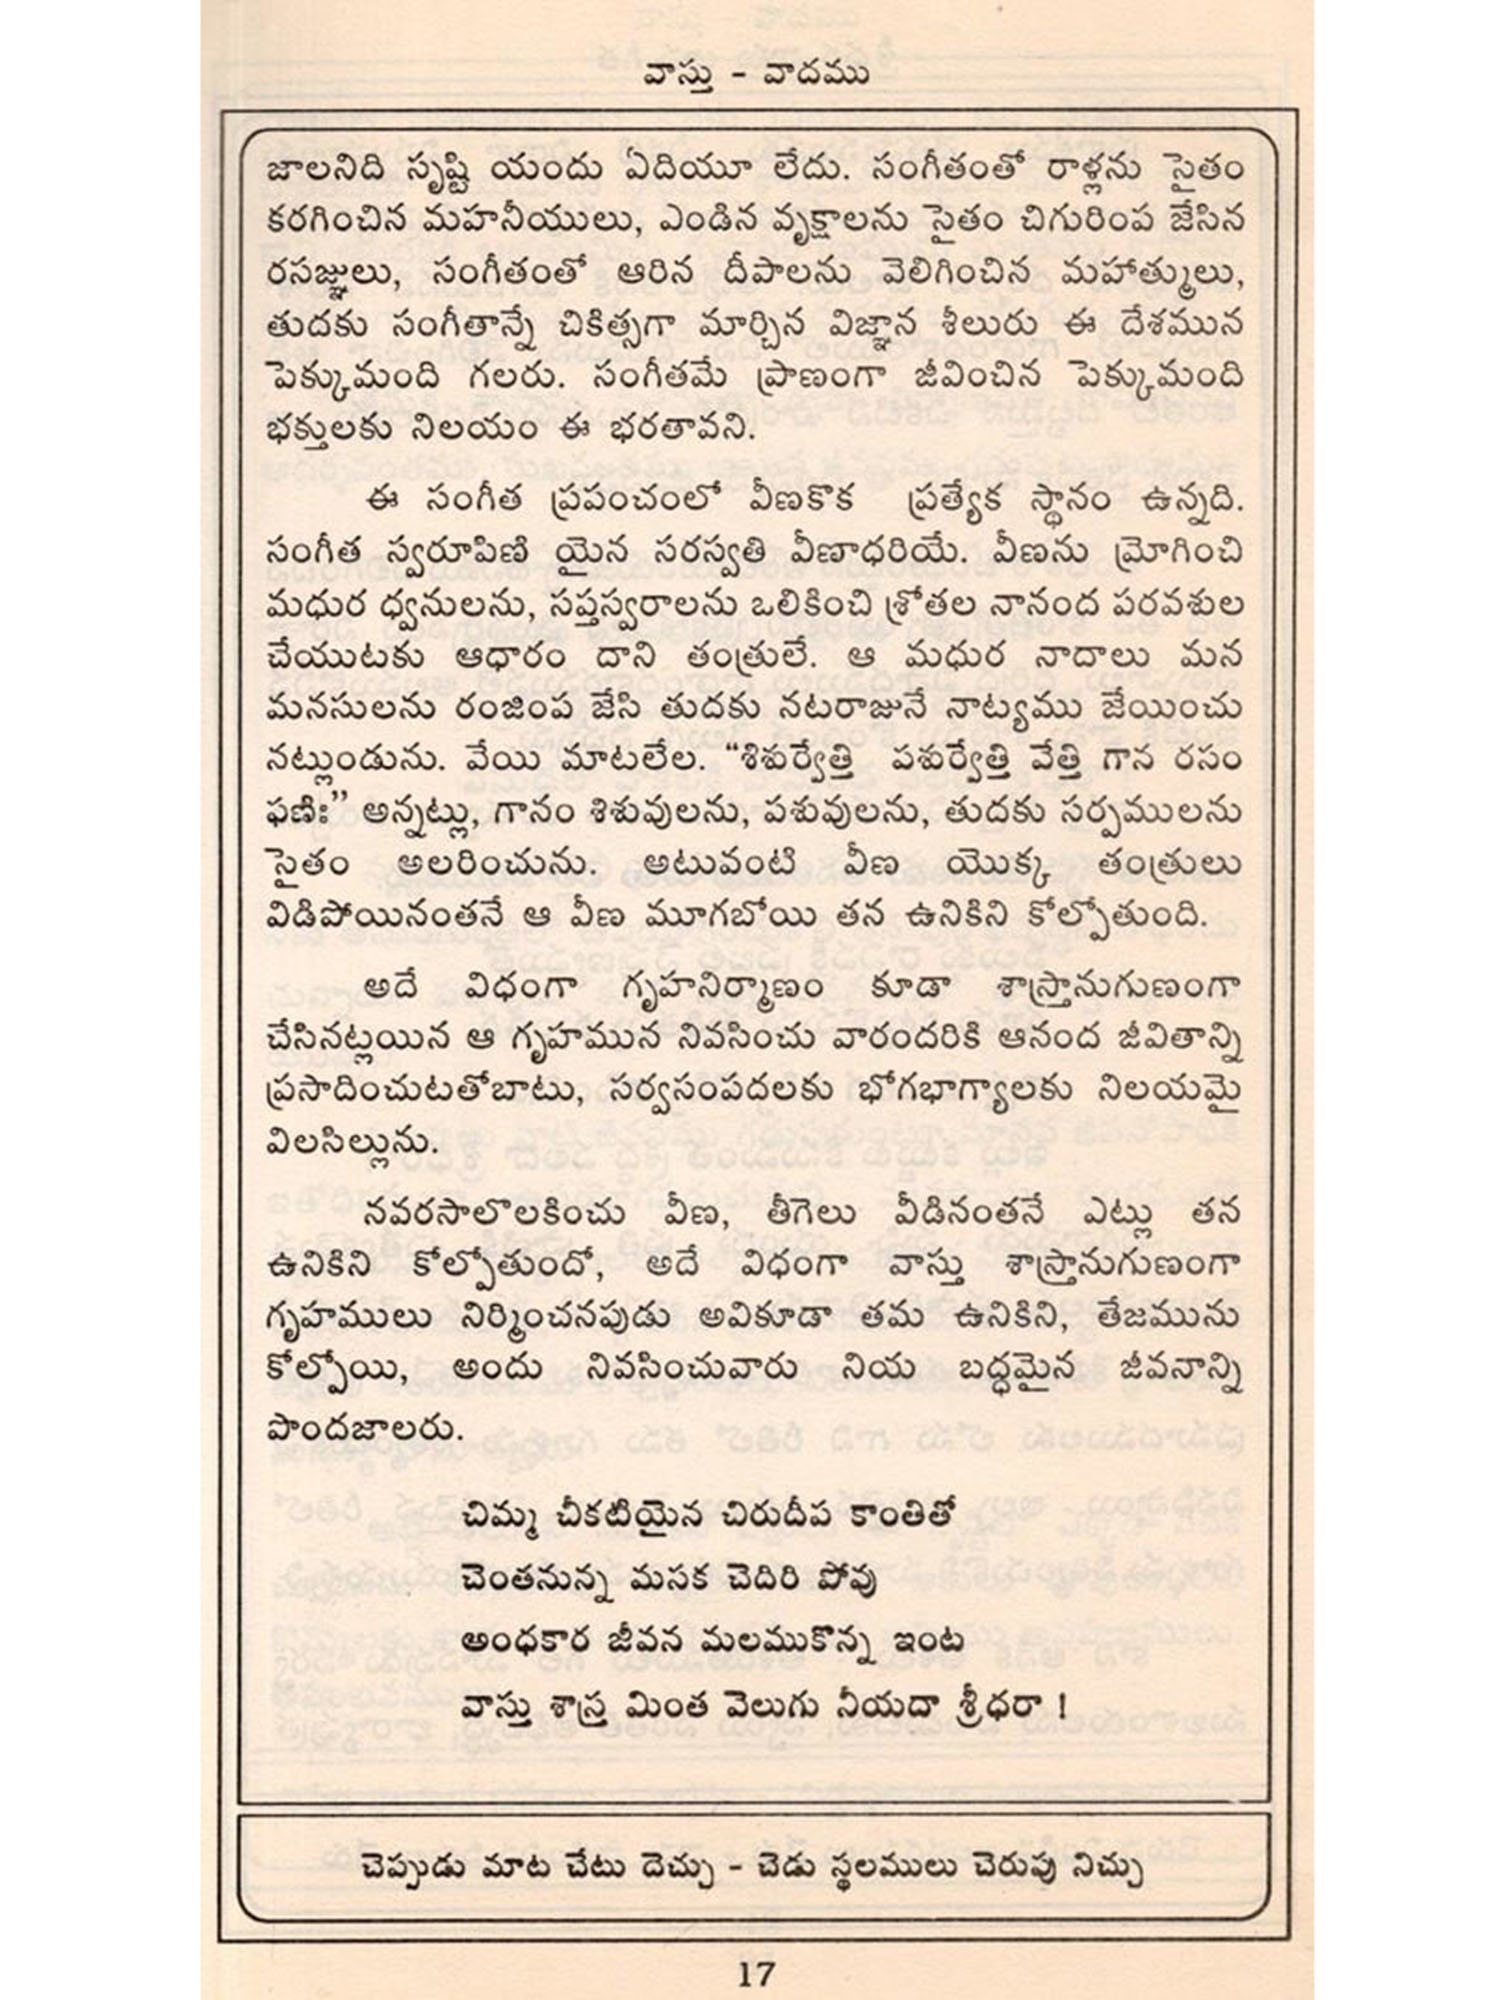 వాస్తు - వాదము
జాలనిది సృష్టి యందు ఏదియూ లేదు. సంగీతంతో రాళ్లను సైతం
కరగించిన మహనీయులు, ఎండిన వృక్షాలను సైతం చిగురింప జేసిన
రసజ్ఞులు, సంగీతంతో ఆరిన దీపాలను వెలిగించిన మహాత్ములు,
తుదకు సంగీతాన్నే చికిత్సగా మార్చిన విజ్ఞాన శీలురు ఈ దేశమున
పెక్కుమంది గలరు. సంగీతమే ప్రాణంగా జీవించిన పెక్కుమంది
భక్తులకు నిలయం ఈ భరతావని.
ఈ సంగీత ప్రపంచంలో వీణకొక ప్రత్యేక స్థానం ఉన్నది.
సంగీత స్వరూపిణి యైన సరస్వతి వీణాధరియే. వీణను మ్రోగించి
మధుర ధ్వనులను, సప్తస్వరాలను ఒలికించి శ్రోతల నానంద పరవశుల
చేయుటకు ఆధారం దాని తంత్రులే. ఆ మధుర నాదాలు మన
మనసులను రంజింప జేసి తుదకు నటరాజునే నాట్యము జేయించు
నట్లుండును. వేయి మాటలేల. “శిశుర్వేత్తి పశుర్వేత్తి వేత్తి గాన రసం
ఫణిః” అన్నట్లు, గానం శిశువులను, పశువులను, తుదకు సర్పములను
సైతం అలరించును. అటువంటి వీణ యొక్క తంత్రులు
విడిపోయినంతనే ఆ వీణ మూగబోయి తన ఉనికిని కోల్పోతుంది.
అదే విధంగా గృహనిర్మాణం కూడా శాస్త్రానుగుణంగా
చేసినట్లయిన ఆ గృహమున నివసించు వారందరికి ఆనంద జీవితాన్ని
ప్రసాదించుటతోబాటు, సర్వసంపదలకు భోగభాగ్యాలకు నిలయమై
విలసిల్లును.
నవరసాలొలకించు వీణ, తీగెలు వీడినంతనే ఎట్లు తన
ఉనికిని కోల్పోతుందో, అదే విధంగా వాస్తు శాస్త్రానుగుణంగా
గృహములు నిర్మించనపుడు అవికూడా తమ ఉనికిని, తేజమును
కోల్పోయి, అందు నివసించువారు నియ బద్ధమైన జీవనాన్ని
పొందజాలరు.
చిమ్మ చీకటియైన చిరుదీప కాంతితో
చెంతనున్న మసక చెదిరి పోవు
అంధకార జీవన మలముకొన్న ఇంట
వాస్తు శాస్త్ర మింత వెలుగు నీయదా శ్రీధరా !
చెప్పుడు మాట చేటు దెచ్చు - చెడు స్థలములు చెరుపు నిచ్చు
17